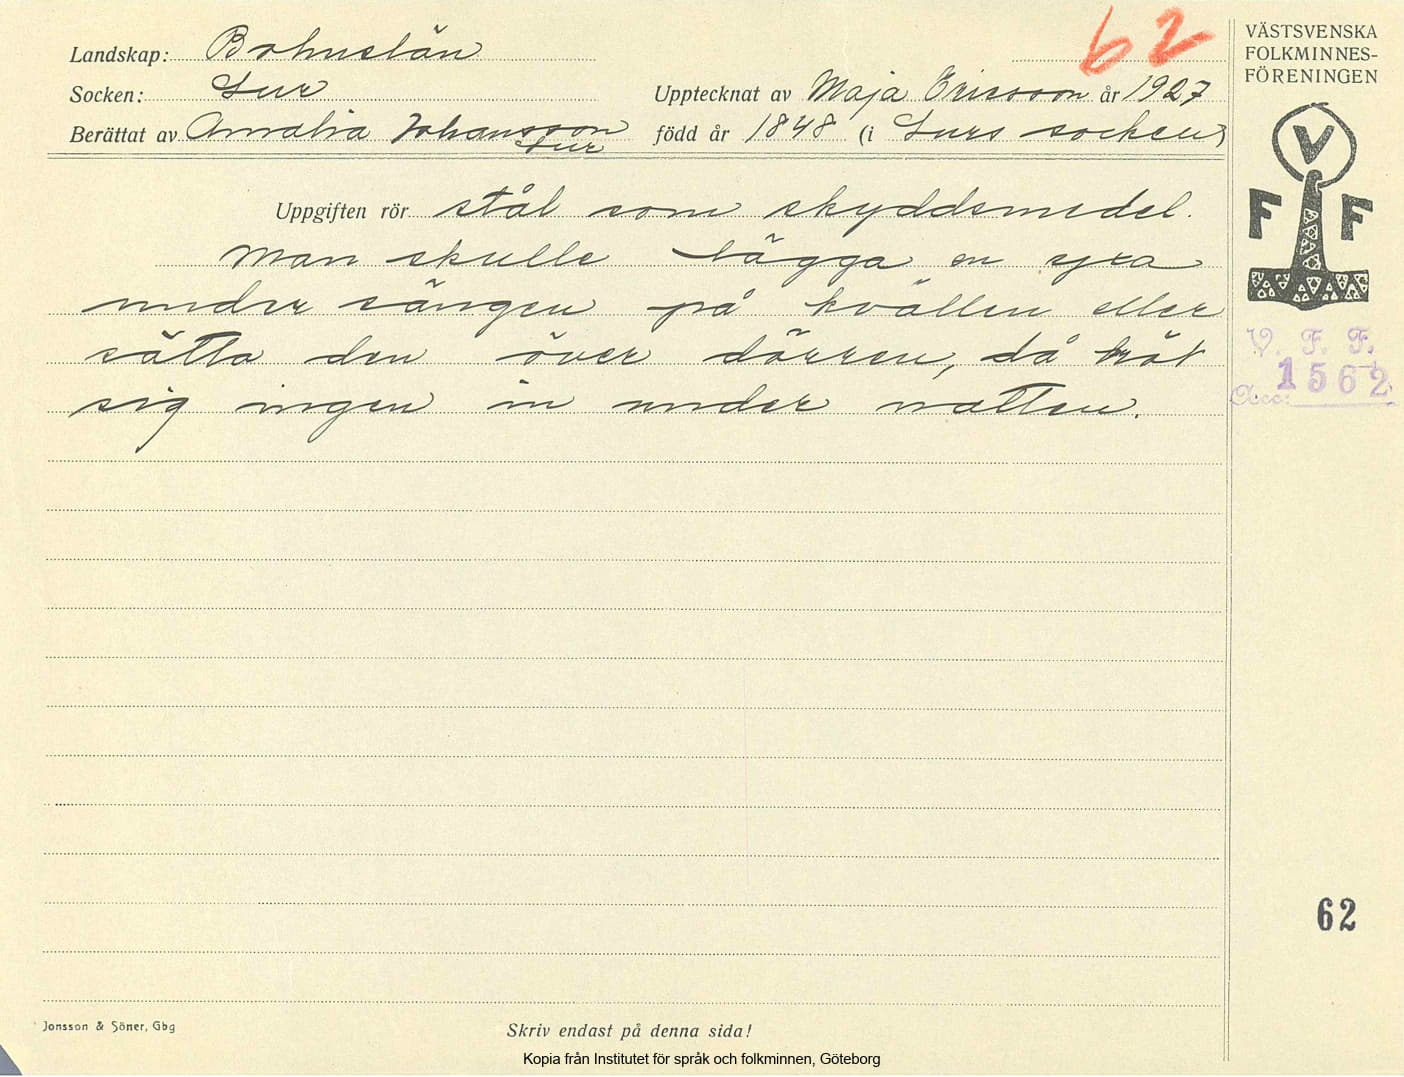 62
VÄSTSVENSKA
FOLKMINNES-
FÖRENINGEN
Landskap: Bohuslän
Socken: Lur
Upptecknat av Maja Ericsson år 1927
Berättat av Amalia Johansson
Lur
född år 1848 (i Lurs socken)
V
F F
Uppgiften rör stål som skyddsmedel.
Man skulle lägga en yxa
under sängen på kvällen eller
sätta den över dörren, då tröt
sig ingen in under natten.
V. F. F.
1562
Acc:
62
Jonsson & Söner, Gbg
Skriv endast på denna sida!
Kopia från Institutet för språk och folkminnen, Göteborg